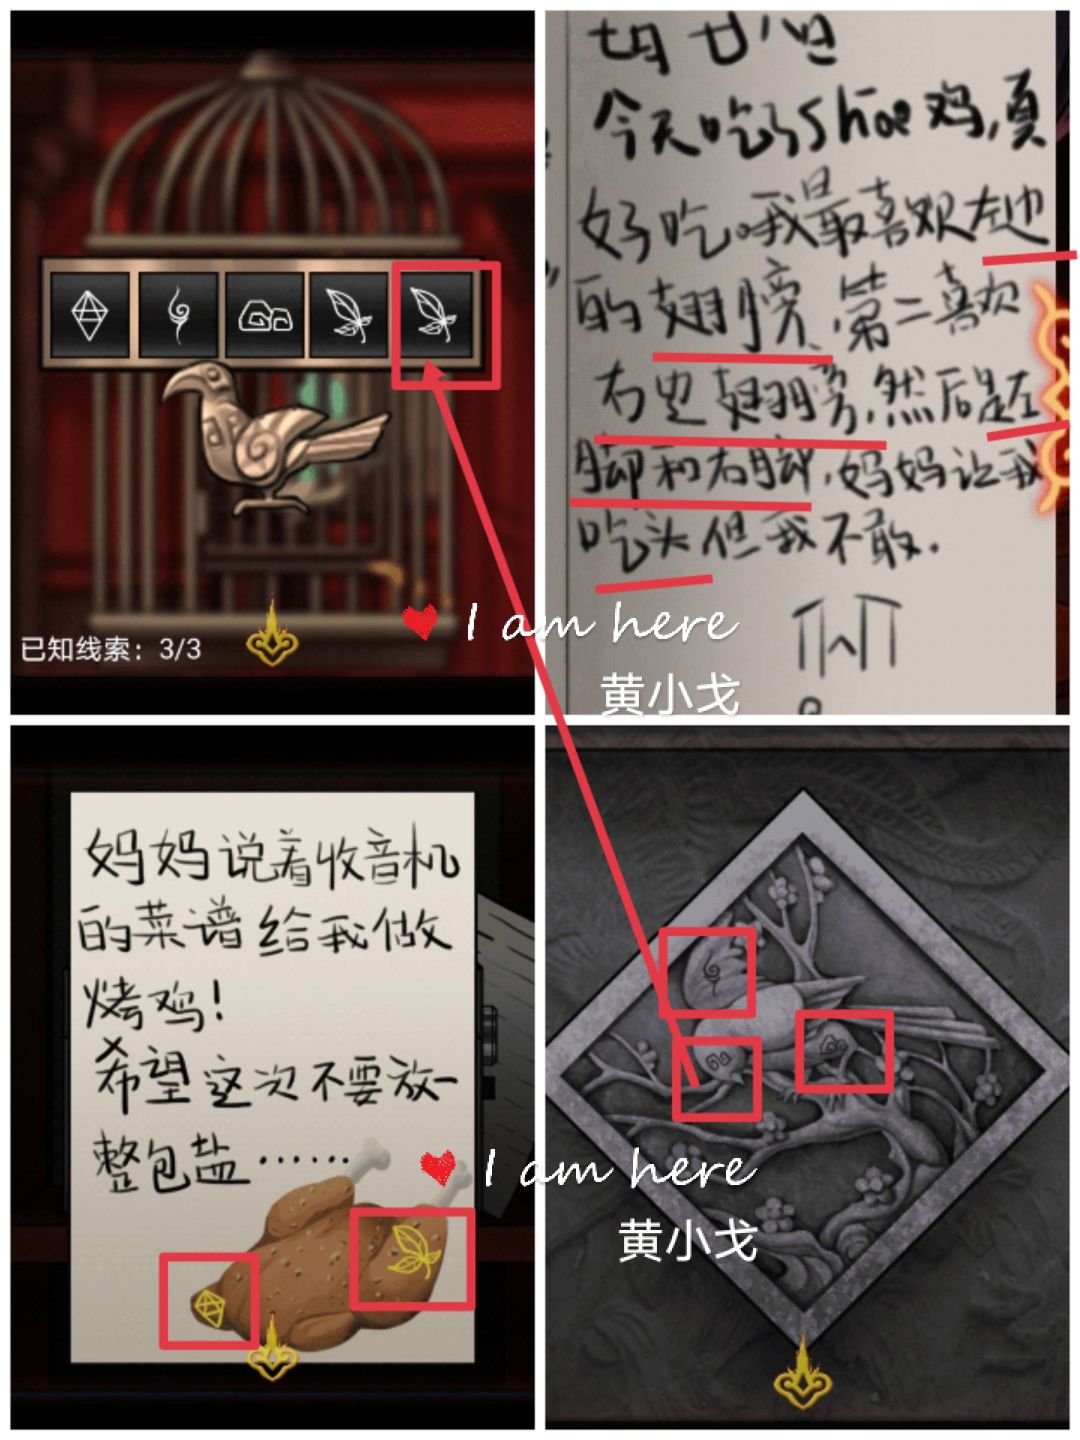 已知线索：3/3
今天吃了Shoe鸡,真
好吃哦我最喜欢左也
的翅膀,第二喜欢
右也翅膀,然后是左
脚和右脚,妈妈让我
吃头但我不敢.
I am here
黄小戈
妈妈说着收音机
的菜谱给我做
烤鸡!
希望这次不要放一
整包盐……
I am here
黄小戈